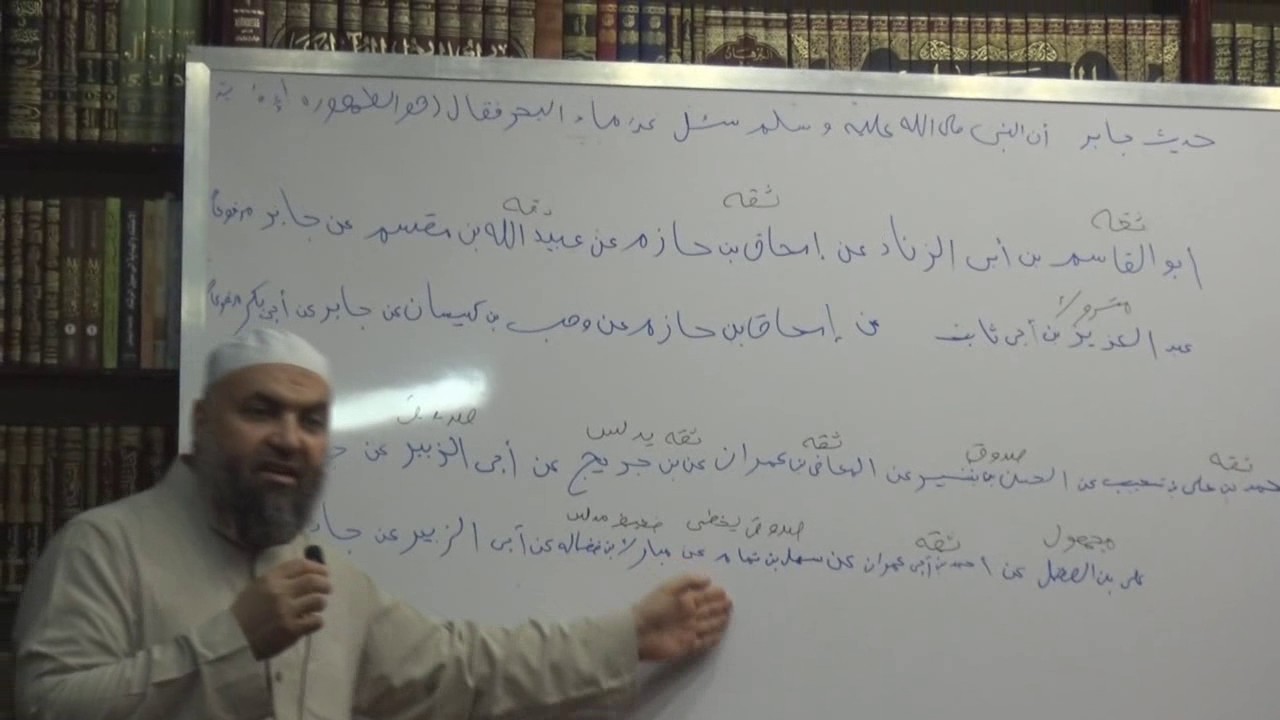 حديث جابر أن النبي صلى الله عليه وسلم سئل عن ماء البحر فقال (هو الطهور
ثقه ثقه ثقه
ابو القاسم بن أبي الزناد عن إسحاق بن حازم عن عبيد الله بن مقسم عن جابر مرفوعاً
متروك
عبد العزيز بن أبي ثابت عن إسحاق بن حازم عن وهب بن كيسان عن جابر عن أبي بكر مرفوعاً
ثقه صدوق ثقه ثقه يدلس صدوق
محمد بن علي بن شعيب عن الحسن بن بشير عن المعافى بن عمران عن بن جريج عن أبي الزبير عن
مجهول ثقه صدوق يخطئ ضعيف مدلس
علي بن الفضل عن احمد بن أبي عمران عن سهل بن تمام عن مبارك بن فضاله عن أبي الزبير عن جا